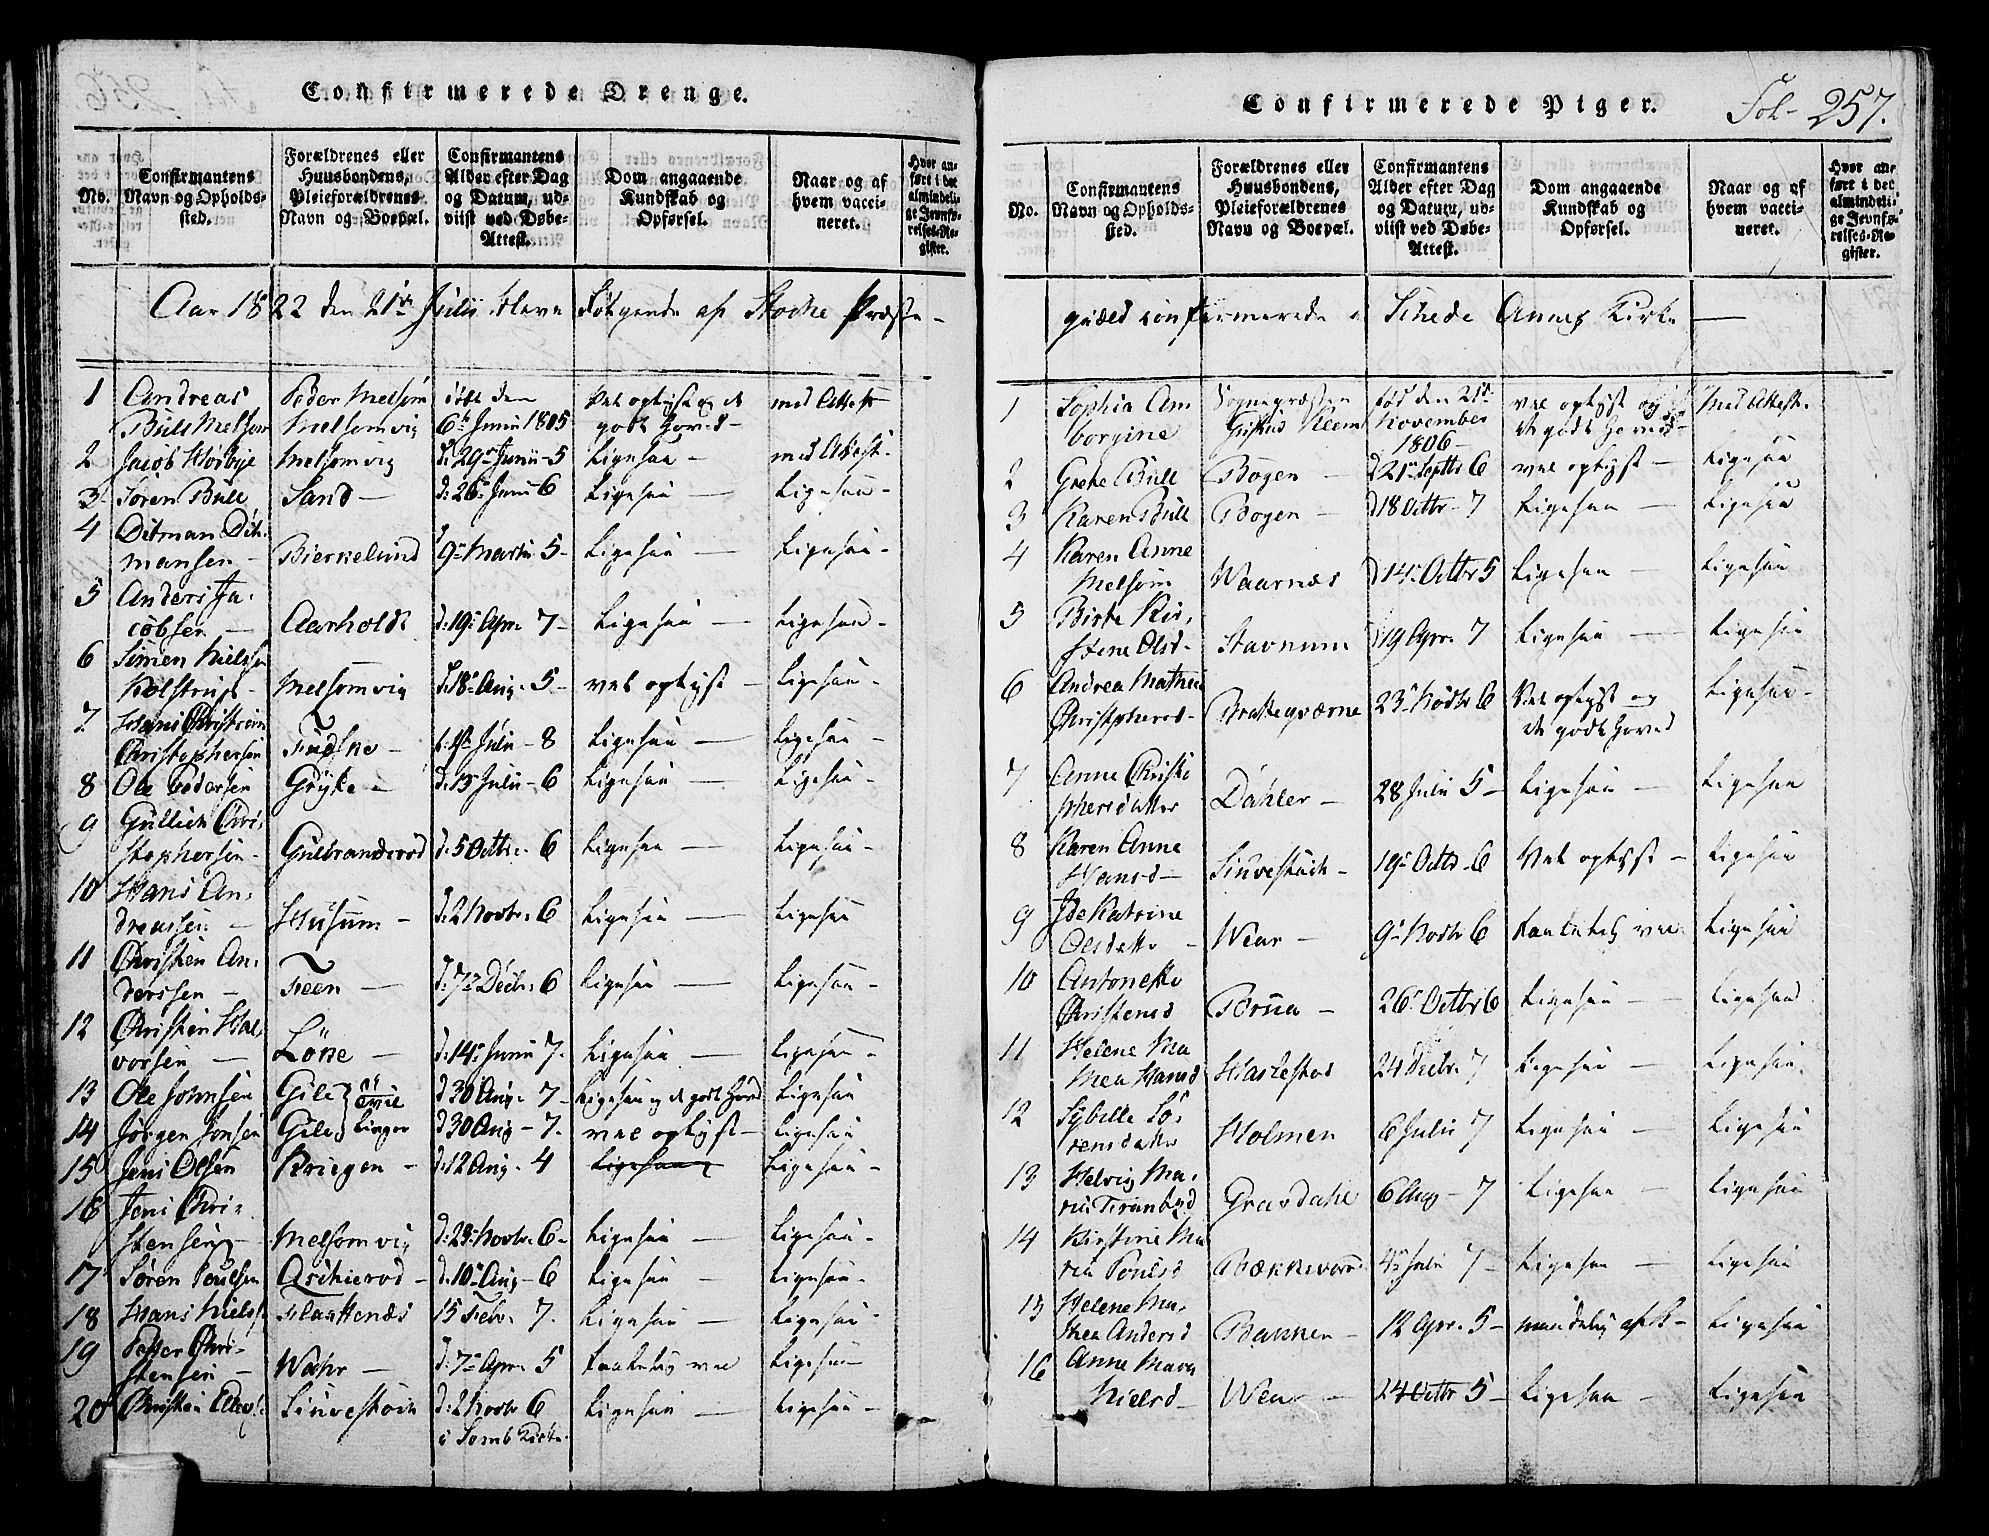 Confirmerede Drenge.
No.
Confirmantens Navn og Opholds-sted.
Forældrenes eller Huusbondens, Pleieforældrenes Navn og Boepæl.
Confirmantens Alder efter Dag og Datum, ud-viist ved Døbe-Attest.
Dom angaaende Kundskab og Opførsel.
Naar og af hvem vacci-neret.
Hvor an-ført i det almindeli-ge Jevnfø-relses-Re-gister.
Aar 1822 den 21de Julii bleve Følgende af Stocke Præste-
1 Andreas Bull Melsom Peder Melsom Melsomvig født den 6te Junii 1805 vel oplyst og et godt Hoved- med Attest
2 Jacob Morbye Melsomvig d. 29de Junii - 5 Ligesaa - med Attest.
3 Søren Bull Sand - d. 26de Junii 6 Ligesaa - Ligesaa -
4 Ditman Dit-mansen - Bierkelund 9de Martii 5 - Ligesaa - Ligesaa -
5 Anders Ja-cobsen - Aarholdt d. 19de Apr. 7 - Ligesaa - Ligesaa -
6 Simen Nielsen Kolstrup - Melsomvig d. 18de Aug. 5 - vel oplyst - Ligesaa -
7. Hans Christian Christophersen Fudsne - Julii - 8 Ligesaa - Ligesaa -
8 Ole Pedersen Gryte - d. 15 Julii - 6 Ligesaa - Ligesaa -
9 Gullich Chri-stophersen - Gulbranderød d. 5 Octbr. 6 Ligesaa - Ligesaa -
10 Hans An-dreassen - Husum - d. 2 Novbr. 6 Ligesaa - Ligesaa
11 Christen An-derssen - Feen - d. 7de Decbr. 6 Ligesaa - Ligesaa -
12 Christen Hal-vorsen - Løne - d. 14de Junii 7. Ligesaa - Ligesaa -
13 Ole Jonnsen Gile Tvil d 30 Aug. 7 - Ligesaa og et godt Hoved Ligesaa
14 Jørgen Jonsen Gile linger d 30 Aug - 7. vel oplyst - Ligesaa
15 Jens Olsen Kriegen - d. 12 Aug. 4 Ligesaa Ligesaa -
16 Jens Chri-stensen - Melsomvig d. 29. Novbr. 6 - Ligesaa - Ligesaa -
17 Søren Poulsen Askierød - d. 10de Aug - 6 Ligesaa - Ligesaa -
18 Hans Niels. Flaattenæs 15 Febr. 7. Ligesaa - Ligesaa -
19 Peder Chri-stensen - Wahr - d. 7de Apr. 5 taalelig vel Ligesaa -
20 Christen Ellevs. Sinvestoch d. 2 Novbr 6 i Semb Kirke. Ligesaa - Ligesaa -
Confirmerede Piger.
Fol- 257.
No.
Confirmantens Navn og Opholds-sted.
Forældrenes eller Huusbondens, Pleieforældrenes Navn og Boepæl.
Confirmantens Alder efter Dag og Datum, ud-viist ved Døbe-Attest.
Dom angaaende Kundskab og Opførsel.
Naar og af hvem vacci-neret.
Hvor an-ført i det almindeli-ge Jevnfø-relses-Re-gister.
gield confirmerede i Skiede Annex Kirke -
1 Sophia Am-borgine Sognepræsten Gustus Kleem født den 21de November 1806 - vel oplyst og et godt Hoved - Med Attest.
2 Grete Bull Bogen - d 21de Septbr 6 vel oplyst - Ligesaa
3 Karen Bull Bogen - d 18 Octbr - 7 Ligesaa - Ligesaa
4 Karen Anne Melsom Waarnæs d 14de Octbr 5 Ligesaa - Ligesaa
5 Birte Kir-stene Olsd - Stavnum d 19 Apr. 7 Ligesaa - Ligesaa
6 Andrea Mathea Christophersd - Brattequærne 23de Novbr 6 Vel oplyst og et godt Hoved Ligesaa -
7 Anne Christo-phersdatter Dahler - 28 Julii 5 - Ligesaa - Ligesaa
8 Karen Anne Hansd - Sinvestoch - 19de Octbr - 6 Vel oplyst - Ligesaa
9 Ide Katrine Olsdatter - Wear - 9de Novbr 6 taalelig vel Ligesaa
10 Antonette Christensd Borua - 26de Octbr 6 Ligesaa - Ligesaa
11 Helene Ma-thea Hansd Harlestad 24 Decbr 7 Ligesaa - Ligesaa.
12 Sybille Sø-rensdatter Holmen 6 Julii 7 Ligesaa - Ligesaa
13 Helvig Ma-ria Grasdahl 6 Aug - 7 Ligesaa - Ligesaa
14 Kirstine Ma-ria Poulsd Bækkevold 4de Julii 7 - Ligesaa - Ligesaa
15 Helene Ma-thea Andersd Bakken - 12 Apr. 5 - - Ligesaa
16 Anne Maria Nielsd - Wear - 24 Octbr 5 - Ligesaa - Ligesaa